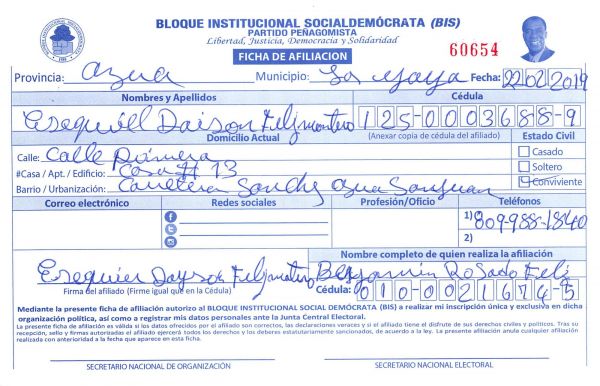 BLOQUE INSTITUCIONAL SOCIALDEMÓCRATA (BIS)
PARTIDO PEÑAGOMISTA
Libertad, Justicia, Democracia y Solidaridad
FICHA DE AFILIACION
60654
Provincia: Azua Municipio: La Yaya Fecha: 22 02 2019
Nombres y Apellidos Cédula
Daison Feliz montero 125-0003688-9
(Anexar copia de cédula del afiliado)
Domicilio Actual Estado Civil
Calle: Calle Primera
Casado
#Casa / Apt. / Edificio: Casa # 13
Soltero
Barrio / Urbanización: Carretera Sanchez Azua San Juan
Conviviente
Correo electrónico Redes sociales Profesión/Oficio Teléfonos
1) 809-988-1840
2)
Nombre completo de quien realiza la afiliación
Benjamin Rosado Feliz
Firma del afiliado (Firme igual que en la Cédula)
Cédula: 010-0021674-5
Mediante la presente ficha de afiliación autorizo al BLOQUE INSTITUCIONAL SOCIAL DEMÓCRATA (BIS) a realizar mi inscripción única y exclusiva en dicha
organización política, así como a registrar mis datos personales ante la Junta Central Electoral.
La presente ficha de afiliación es válida si los datos ofrecidos por el afiliado son correctos, las declaraciones veraces y si el afiliado tiene el disfrute de sus derechos civiles y políticos. Tras su
recepción, sello y firmas autorizadas el afiliado ejercerá todos los derechos y los deberes estatutariamente sancionados, de acuerdo a la ley. La presente afiliación anula cualquier afiliación
realizada con anterioridad a la fecha que aparece en esta ficha.
SECRETARIO NACIONAL DE ORGANIZACIÓN
SECRETARIO NACIONAL ELECTORAL